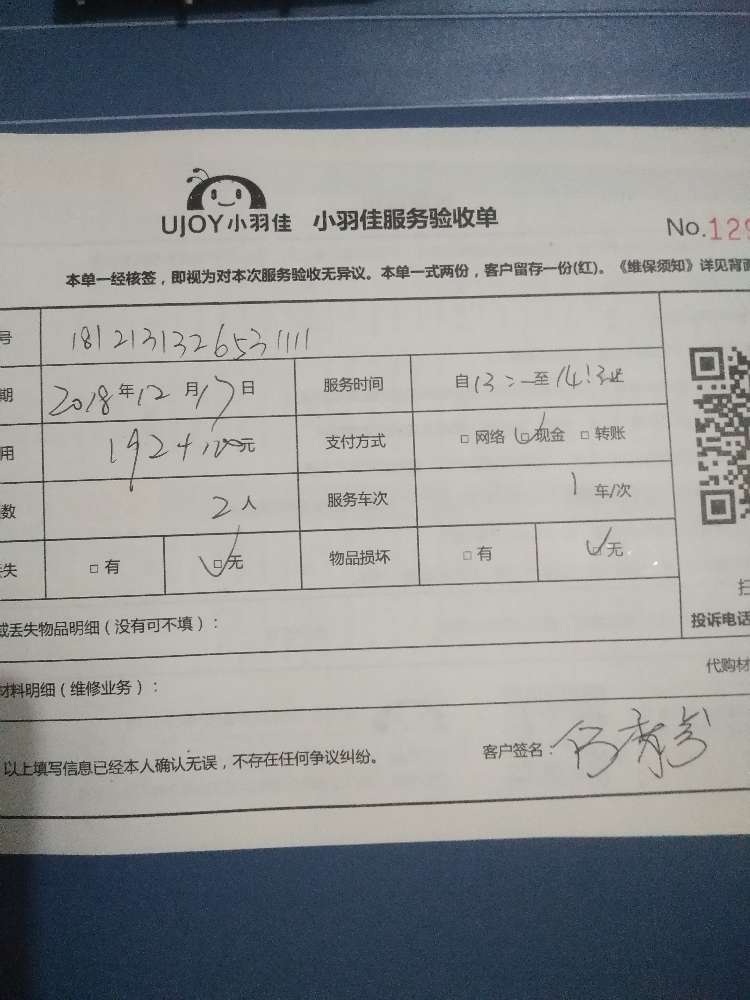 UJOY小羽佳 小羽佳服务验收单
No.129
本单一经核签，即视为对本次服务验收无异议。本单一式两份，客户留存一份(红)。《维保须知》详见背面
号 18121313265311111
期 2018年12月17日 服务时间 自13:-至14:
用 192+100元 支付方式 □网络 □现金 □转账
数 2人 服务车次 1车/次
失 □有 □无 物品损坏 □有 □无
或丢失物品明细（没有可不填）：
投诉电话
材料明细（维修业务）：
代购材
以上填写信息已经本人确认无误，不存在任何争议纠纷。 客户签名：